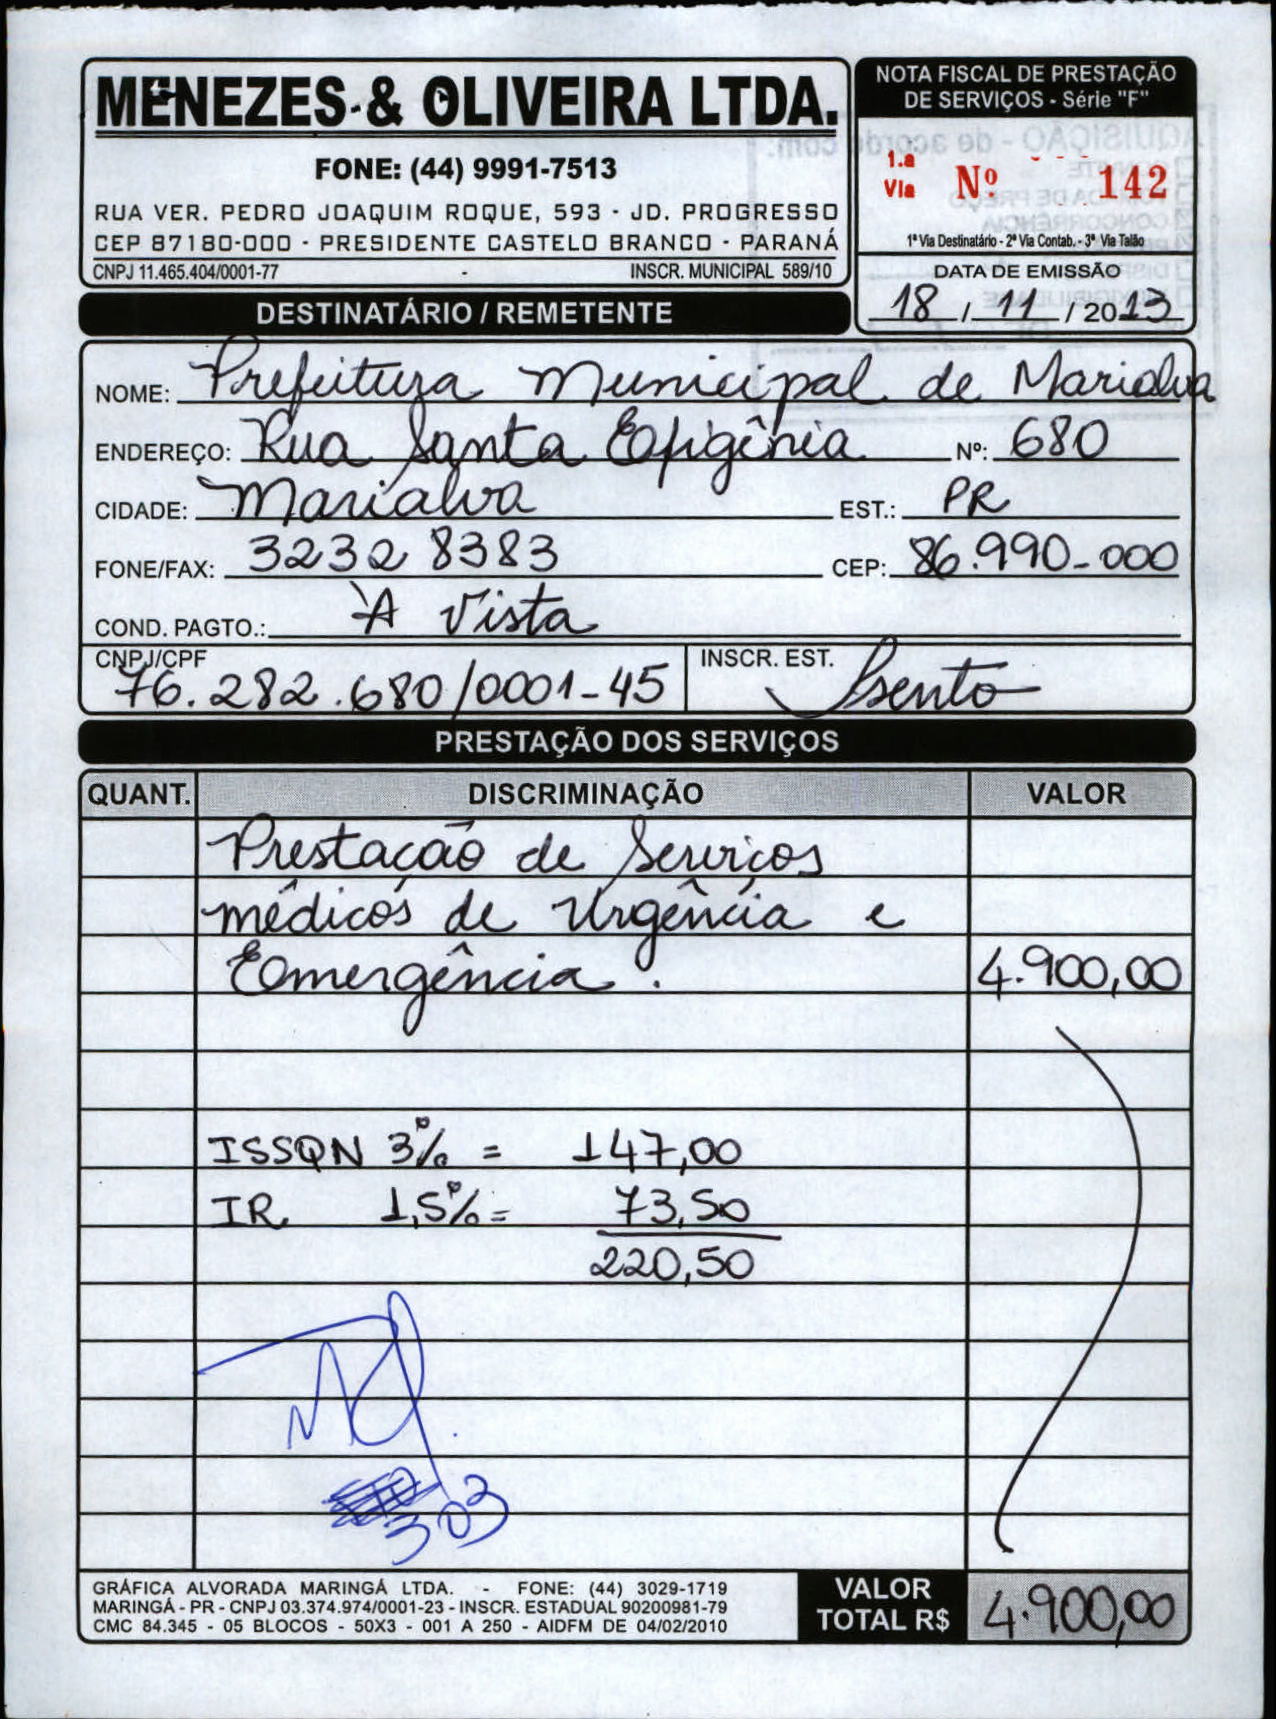 MENEZES & OLIVEIRA LTDA.
FONE: (44) 9991-7513
RUA VER. PEDRO JOAQUIM ROQUE, 593 - JD. PROGRESSO
CEP 87180-000 - PRESIDENTE CASTELO BRANCO - PARANÁ
CNPJ 11.465.404/0001-77 INSCR. MUNICIPAL 589/10
NOTA FISCAL DE PRESTAÇÃO
DE SERVIÇOS - Série "F"
AQUISIÇÃO - de acordo com:
1.a
Via Nº 142
CONCORRÊNCIA
1ª Via Destinatário - 2ª Via Contab. - 3ª Via Talão
DATA DE EMISSÃO
18 / 11 / 2013
DESTINATÁRIO / REMETENTE
NOME: Prefeitura Municipal de Marialva
ENDEREÇO: Rua Santa Efigênia Nº: 680
CIDADE: Marialva EST.: PR
FONE/FAX: 3232 8383 CEP: 86.990-000
COND. PAGTO.: À Vista
CNPJ/CPF INSCR. EST.
76.282.680/0001-45 Isento
PRESTAÇÃO DOS SERVIÇOS
QUANT. DISCRIMINAÇÃO VALOR
Prestação de Serviços
médicos de Urgência e
Emergência. 4.900,00
ISSQN 3% = 147,00
IR 1,5% = 73,50
220,50
303
GRÁFICA ALVORADA MARINGÁ LTDA. - FONE: (44) 3029-1719
MARINGÁ - PR - CNPJ 03.374.974/0001-23 - INSCR. ESTADUAL 90200981-79
CMC 84.345 - 05 BLOCOS - 50X3 - 001 A 250 - AIDFM DE 04/02/2010
VALOR
TOTAL R$ 4.900,00